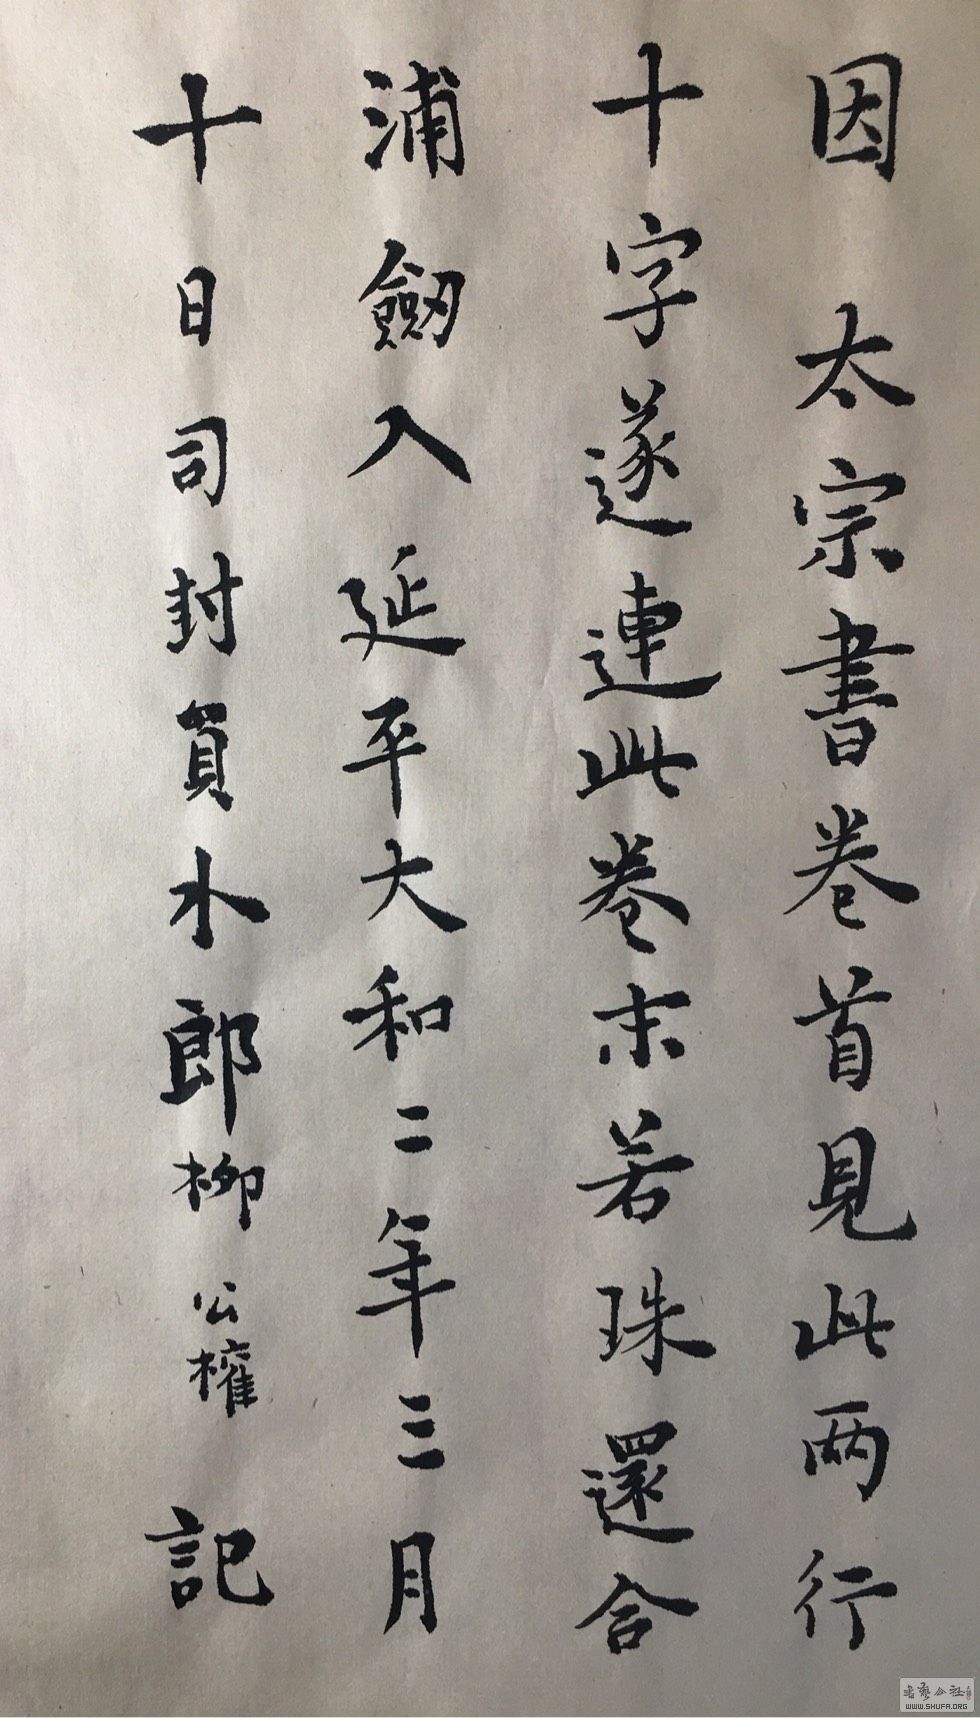 因太宗書卷首見此兩行
十字遂連此卷末若珠還合
浦劒入延平大和二年三月
十日司封員水郎柳公權記
书艺公社
WWW.SHUFA.ORG